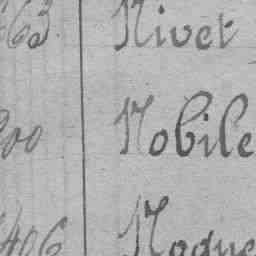 663 Nivet
200 Nobile
406 Nogue